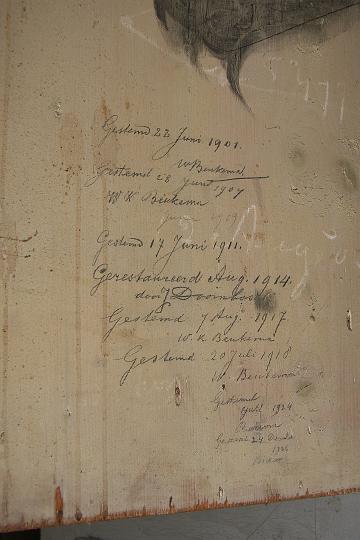 Gestemd 22 Juni 1901.
W Beukema
Gestemd 28 Juni 1907
W K Beukema
Juni 1909
Gestemd 17 Juni 1911.
Gerestaureerd Aug. 1914.
door J Doornbos
Gestemd 7 Aug. 1917.
W. K Beukema
Gestemd 20 Juli 1918
W. Beukema
Gestemd
1924
Gestemd 24